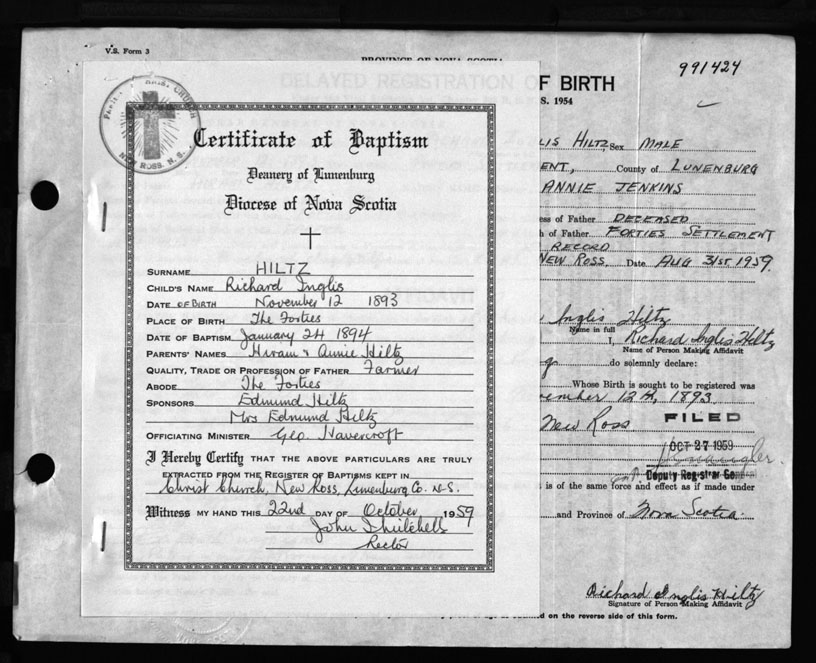 V.S. Form 3
PROVINCE OF NOVA SCOTIA
DELAYED REGISTRATION OF BIRTH
S. 1954
991424
CHURCH
NEW ROSS, N.S.
Certificate of Baptism
Deanery of Lunenburg
Diocese of Nova Scotia
SURNAME HILTZ
CHILD'S NAME Richard Inglis
DATE OF BIRTH November 12 1893
PLACE OF BIRTH The Forties
DATE OF BAPTISM January 24 1894
PARENTS' NAMES Hiram & Annie Hiltz
QUALITY, TRADE OR PROFESSION OF FATHER Farmer
ABODE The Forties
SPONSORS Edmund Hiltz
Mrs Edmund Hiltz
OFFICIATING MINISTER Geo. Havercroft
I Hereby Certify THAT THE ABOVE PARTICULARS ARE TRULY
EXTRACTED FROM THE REGISTER OF BAPTISMS KEPT IN
Christ Church, New Ross, Lunenburg Co. N.S.
Witness MY HAND THIS 22nd DAY OF October 1959
John
Rector
LIS HILTZ Sex MALE
ENT, County of LUNENBURG
ANNIE JENKINS
ess of Father DECEASED
h of Father FORTIES SETTLEMENT
RECORD
NEW ROSS. Date AUG 31st 1959.
AFFIDAVIT
Inglis Hiltz
Name in full
I, Richard Inglis Hiltz
Name of Person Making Affidavit
do solemnly declare:
Whose Birth is sought to be registered was
ember 12th, 1893.
New Ross
FILED
OCT 27 1959
Deputy Registrar General
is of the same force and effect as if made under
and Province of Nova Scotia.
Richard Inglis Hiltz
Signature of Person Making Affidavit
on the reverse side of this form.